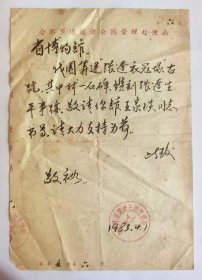 合肥市逍遥津公园管理处便函
省博物馆
我园筹建"张辽衣冠塚古
跡,其中任一石碑,镌刻张辽生
平事跡,敬请你馆王景琪同志
书写,请大力支持为荷
此致
敬礼
1983.4.1